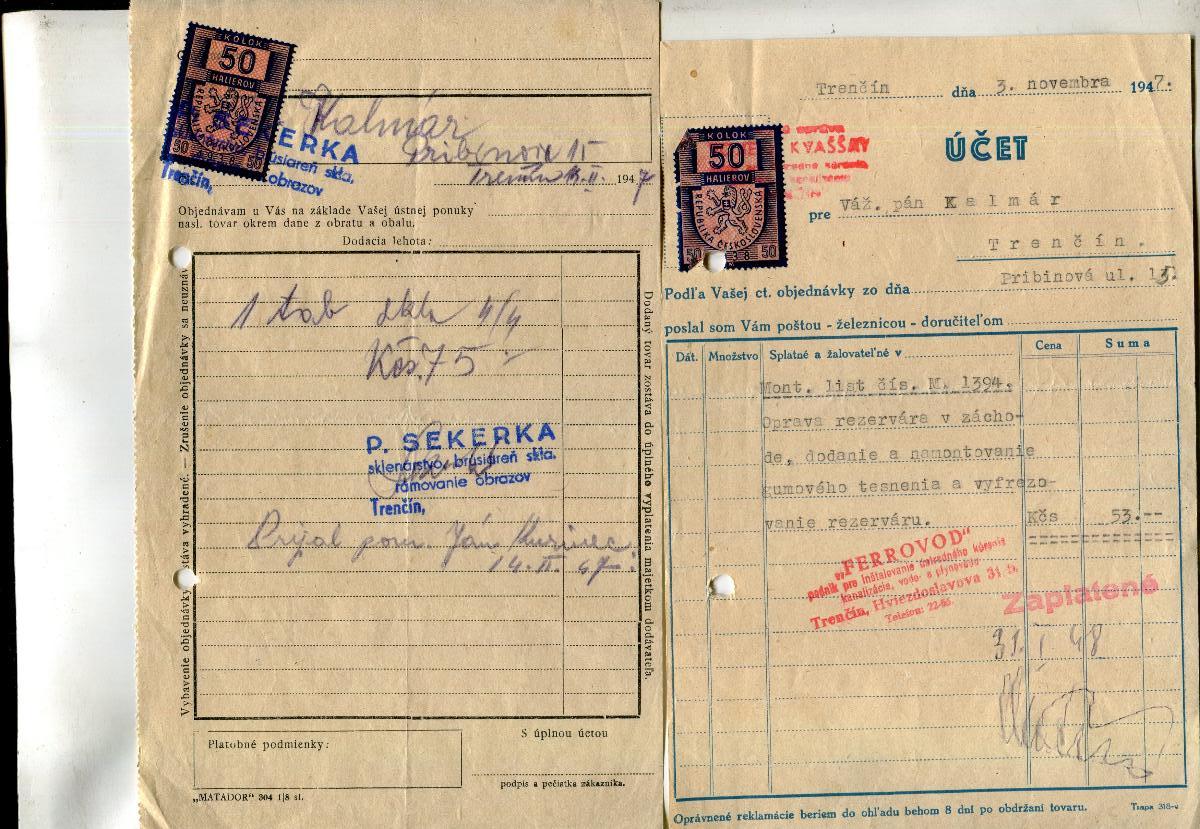 KOLOK
50
HALIEROV
REPUBLIKA ČESKOSLOVENSKÁ
50 50
Kalmár
Pribinova 15
SEKERKA
brusiareň skla,
obrazov
Trenčín,
Trenčín 13.II. 1947
Objednávam u Vás na základe Vašej ústnej ponuky
nasl. tovar okrem dane z obratu a obalu.
Dodacia lehota:
1 tab skla 4/4
Kčs. 75 -
P. SEKERKA
sklenárstvo, brusiareň skla,
rámovanie obrazov
Trenčín,
Prijal pom. Ján
14. II. 47
Vybavenie objednávky stáva vyhradené. — Zrušenie objednávky sa neuzná
Dodaný tovar zostáva do úplného vyplatenia majetkom dodávateľa.
Platobné podmienky:
S úplnou úctou
podpis a pečiatka zákazníka.
„MATADOR" 304 1/8 sl.
Trenčín dňa 3. novembra 1947.
KOLOK
50
HALIEROV
REPUBLIKA ČESKOSLOVENSKÁ
50 38 50
správa
KVAŠŠAY
ÚČET
pre Váž. pán Kalmár
Trenčín.
Pribinová ul. 15.
Podľa Vašej ct. objednávky zo dňa
poslal som Vám poštou - železnicou - doručiteľom
Dát. Množstvo Splatné a žalovateľné v Cena Suma
Mont. list čís. M. 1394.
Oprava rezervára v zácho-
de, dodanie a namontovanie
gumového tesnenia a vyfrezo-
vanie rezerváru. Kčs 53.--
„FERROVOD"
podnik pre inštalovanie ústredného kúrenia
kanalizácie, vodo- a plynovodu
Trenčín, Hviezdoslavova 31 b.
Telefon: 22-85.
Zaplatené
31. I 48
Oprávnené reklamácie beriem do ohľadu behom 8 dní po obdržaní tovaru.
Tmpa 318-e